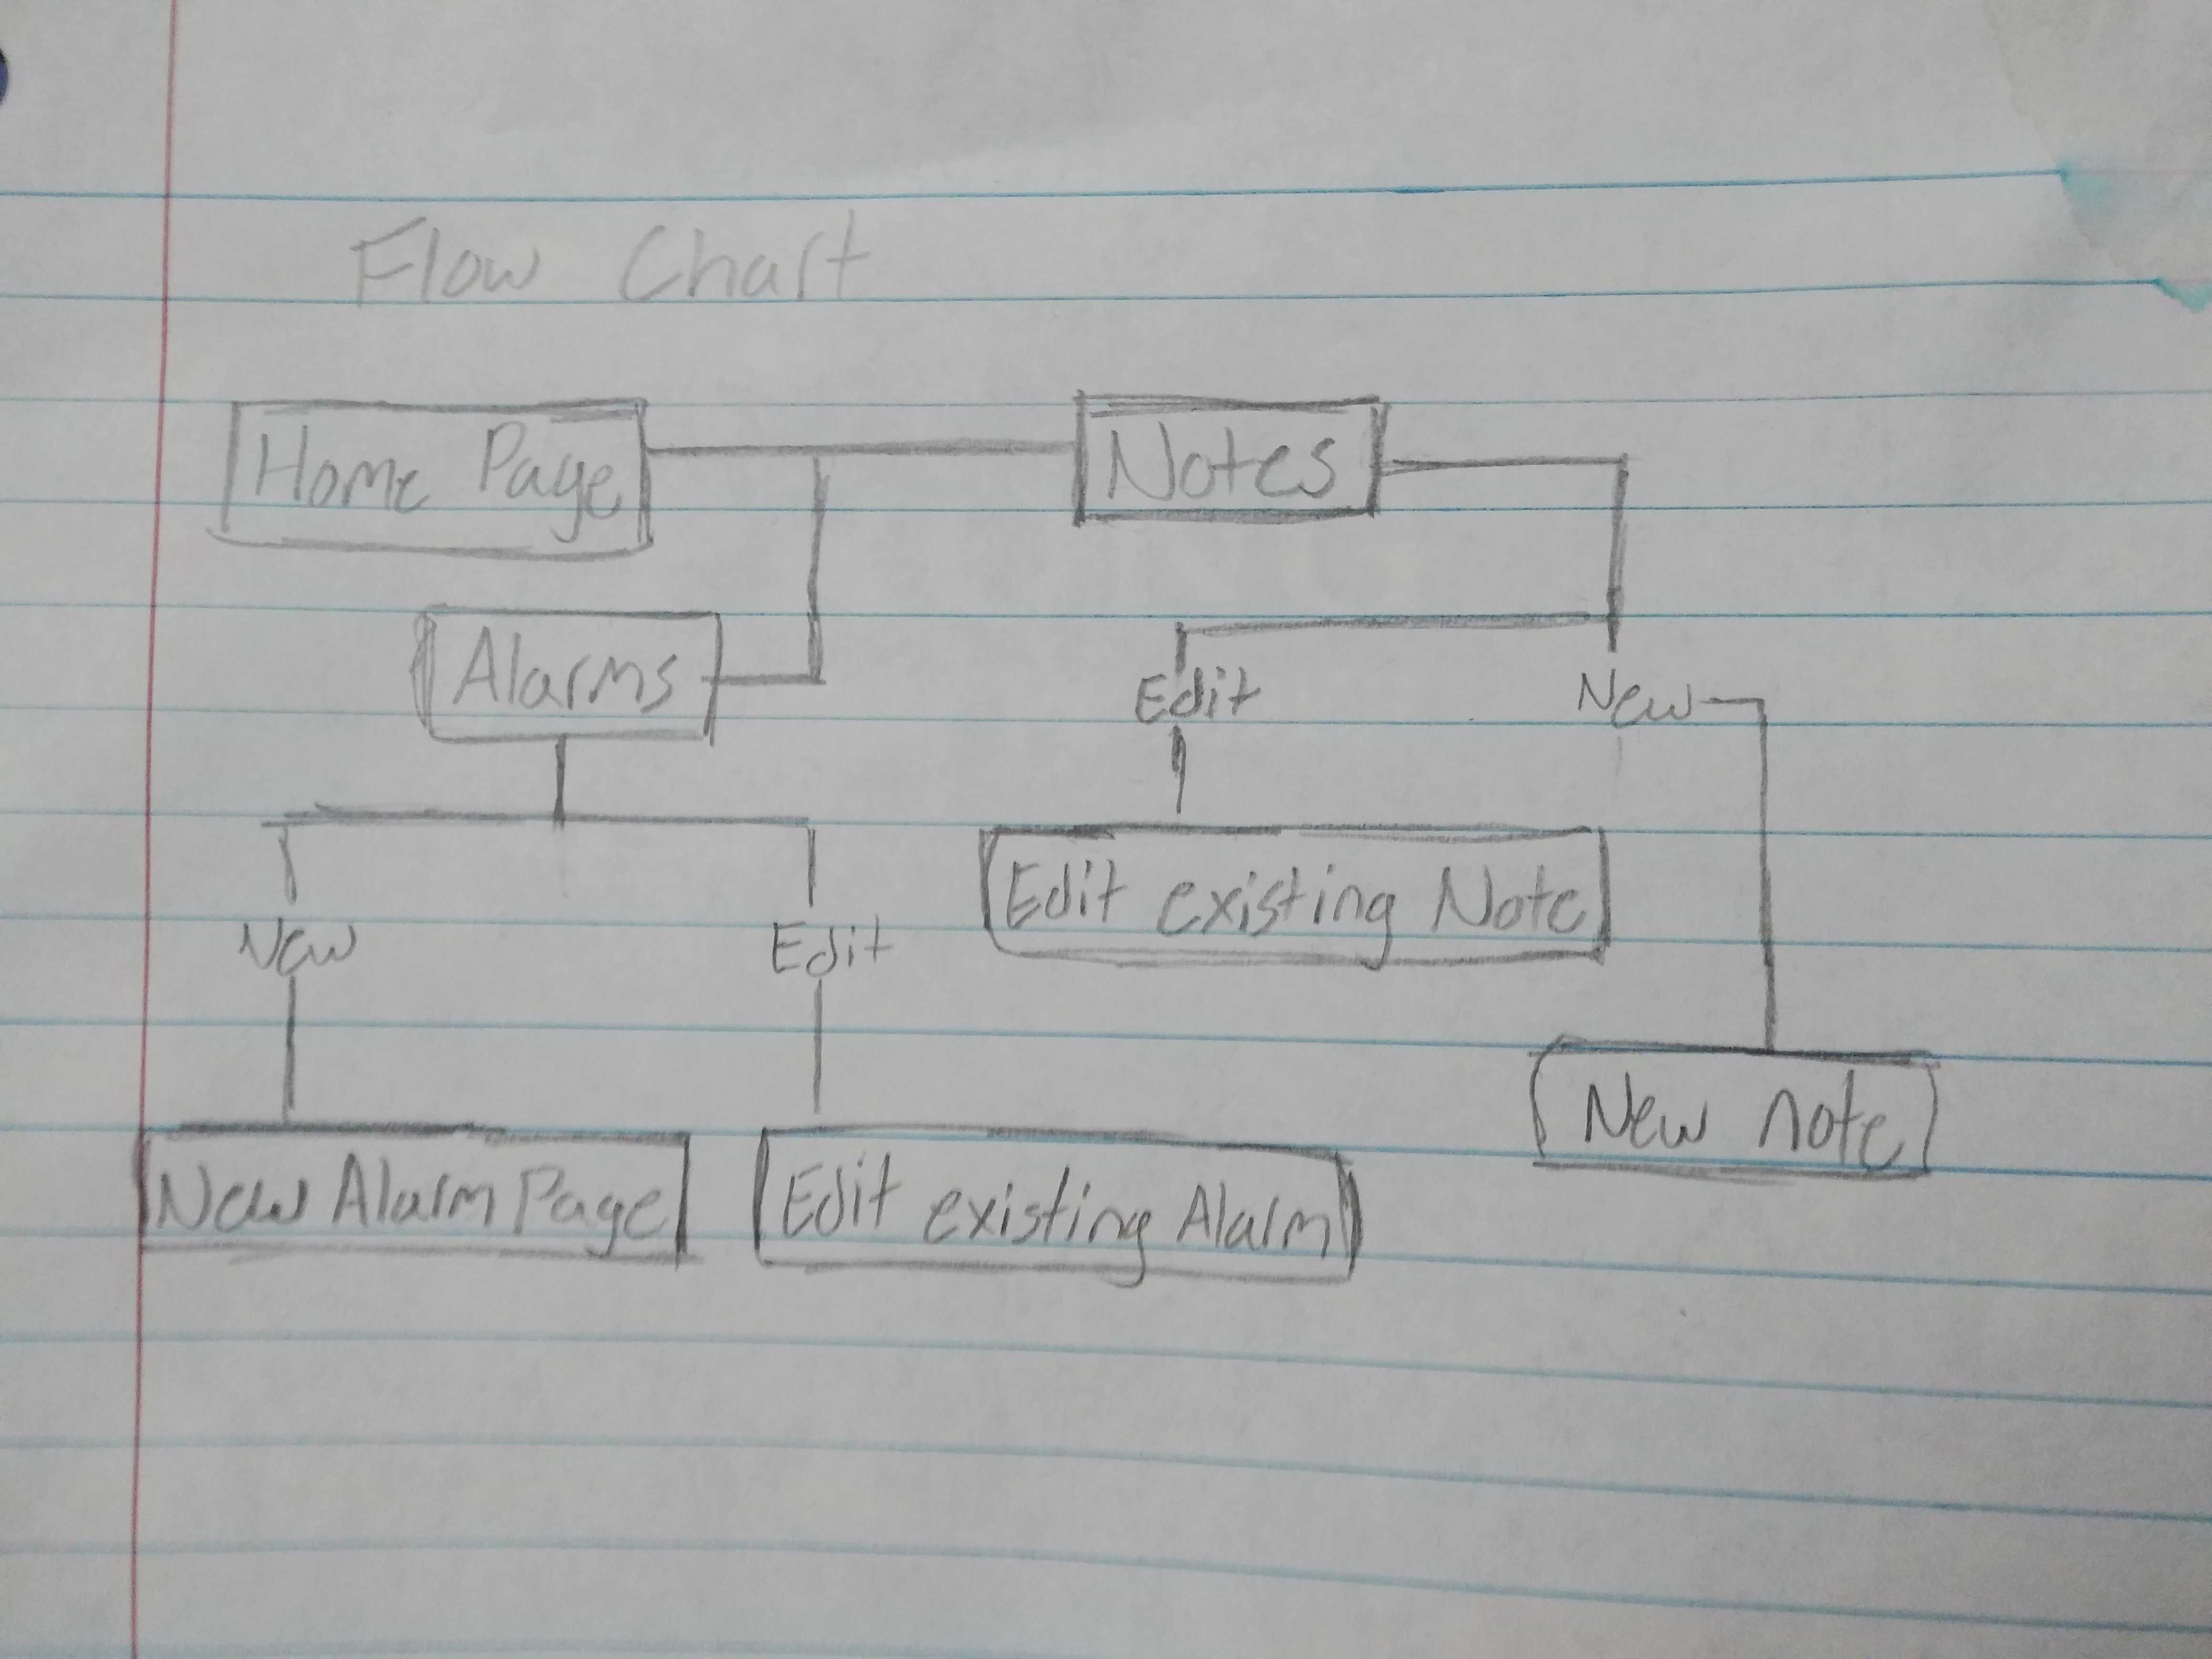 Flow Chart
Home Page
Notes
Alarms
Edit
New
New
Edit
Edit existing Note
New note
New Alarm Page
Edit existing Alarm